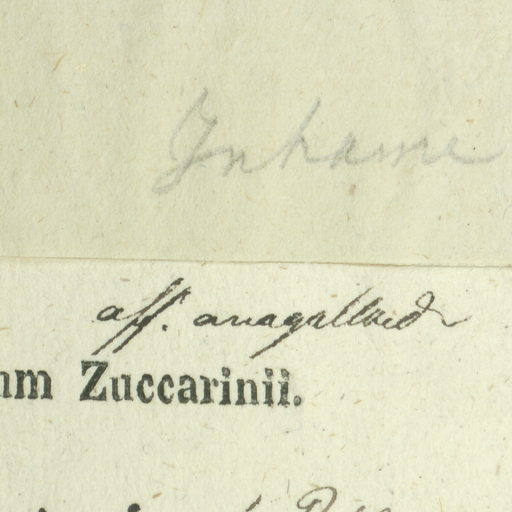 Inhame
aff. anagalloid
um Zuccarinii.